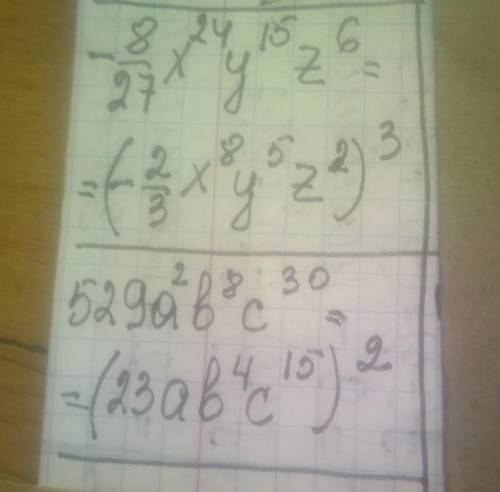 -8/27 x²⁴ y¹⁵ z⁶ =
= (-2/3 x⁸ y⁵ z²)³
529a²b⁸c³⁰ =
= (23ab⁴c¹⁵)²